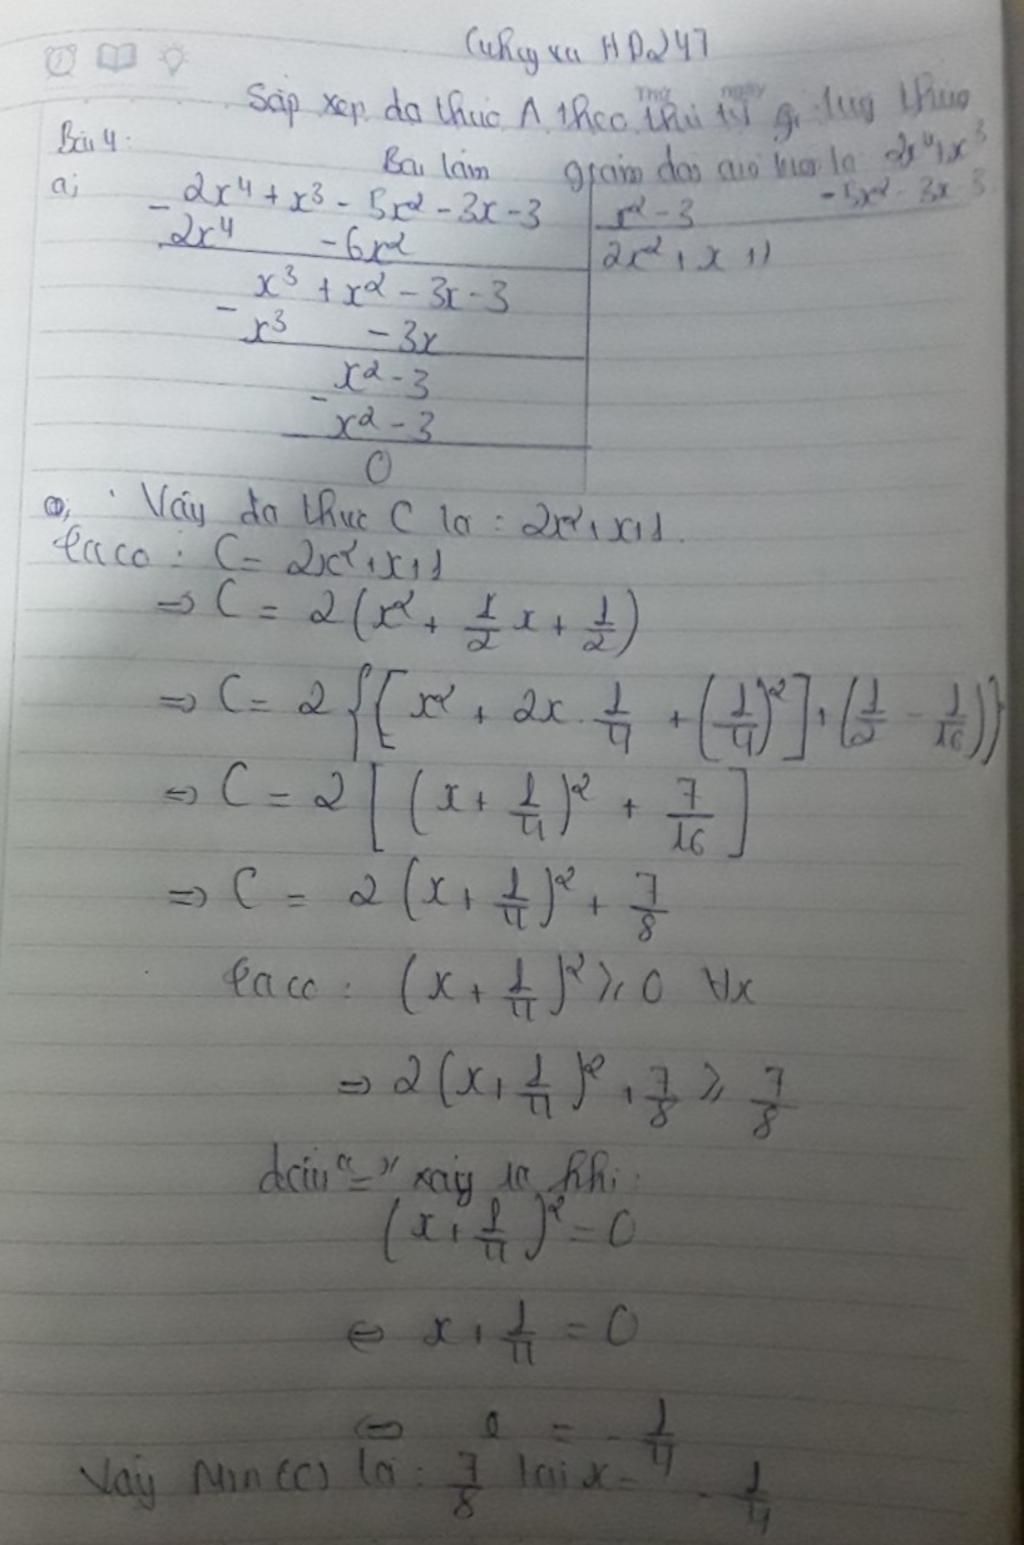 HD247
Sắp xếp đa thức A theo thứ tự
giảm dần của là 2x⁴+x³
-5x²-3x-3
Bài 4:
Bài làm
a;
2x⁴ + x³ - 5x² - 3x - 3 | x² - 3
- 2x⁴ - 6x² | 2x² + x + 1
x³ + x² - 3x - 3
- x³ - 3x
x² - 3
- x² - 3
0
Vậy đa thức C là : 2x²+x+1.
Ta có : C = 2x²+x+1
⇒ C = 2(x² + 1/2 x + 1/2)
⇒ C = 2{[x² + 2x . 1/4 + (1/4)²] + (1/2 - 1/16)}
⇔ C = 2[(x + 1/4)² + 7/16]
⇒ C = 2(x + 1/4)² + 7/8
Ta có : (x + 1/4)² ≥ 0 ∀x
⇒ 2(x + 1/4)² + 7/8 ≥ 7/8
dấu "=" xảy ra khi:
(x + 1/4)² = 0
⇔ x + 1/4 = 0
⇔ = - 1/4
Vậy Min(C) là : 7/8 tại x = - 1/4